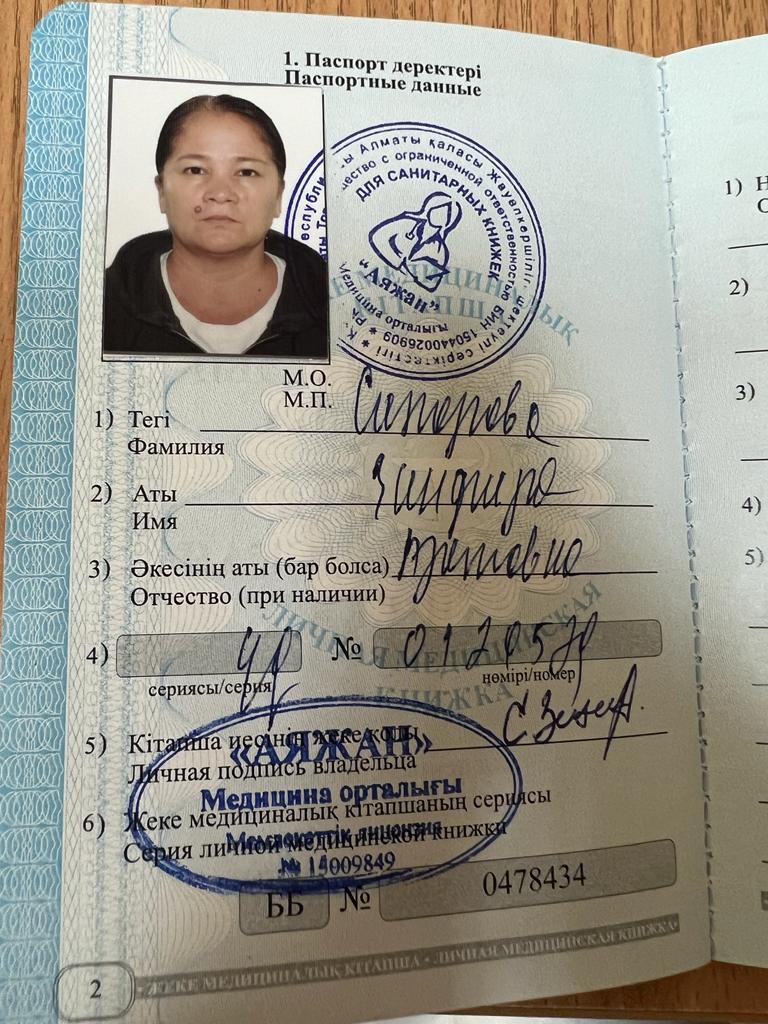 1. Паспорт деректері
Паспортные данные
Алматы қаласы Жауапкершілігі шектеулі серіктестігі
с ограниченной ответственностью БИН 150440026909
ДЛЯ САНИТАРНЫХ КНИЖЕК
"Аяжан"
Медицина орталығы
М.О.
М.П.
1) Тегі Сапарова
Фамилия
2) Аты Зинфира
Имя
3) Әкесінің аты (бар болса)
Отчество (при наличии)
4) № 0120578
сериясы/серия нөмірі/номер
5) Кітапша иесінің жеке қолы
Личная подпись владельца
«АЯЖАН»
Медицина орталығы
Мемлекеттік лицензия
№ 15009849
6) Жеке медициналық кітапшаның сериясы
Серия личной медицинской книжки
ББ № 0478434
2 ЖЕКЕ МЕДИЦИНАЛЫҚ КІТАПША • ЛИЧНАЯ МЕДИЦИНСКАЯ КНИЖКА
1) Н
О
2)
3)
4)
5)